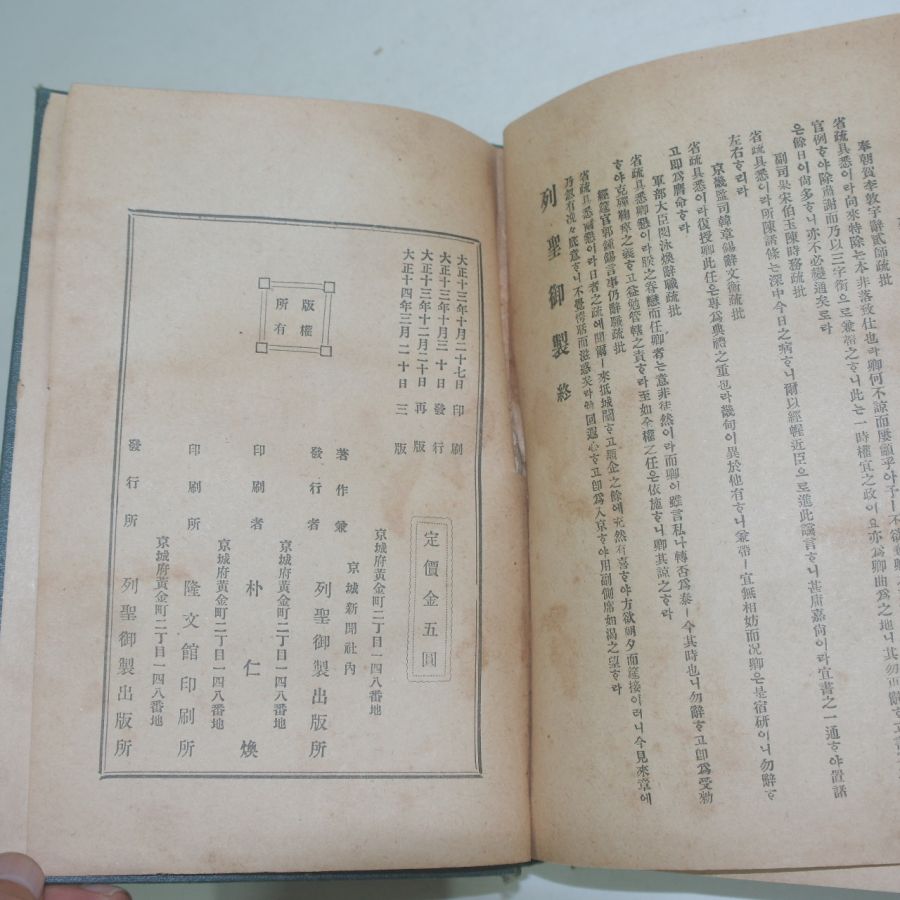 奉朝賀李敦宇辭貳師疏批
省疏具悉이라向來特除는本非落致仕也라卿何不諒而屢顓乎아予ㅣ不欲
官例ᄒᆞ야除肅謝而乃以三字銜으로兼綰之ᄒᆞ니此는一時權宜之政이요亦爲卿曲爲之地니其勿
은餘日이尙多ᄒᆞ니亦不必變通矣로라
副司果宋伯玉陳時務疏批
省疏具悉이라所陳諸條는深中今日之病ᄒᆞ니爾以經幄近臣으로進此讜言ᄒᆞ니甚庸嘉尙이라宜書之一通ᄒᆞ야置諸
左右ᄒᆞ리라
京畿監司韓章錫辭文衡疏批
省疏具悉이라復授卿此任은專爲典禮之重也라畿甸이異於他省ᄒᆞ니兼帶ㅣ宜無相妨而況卿은是宿硏이니勿辭ᄒᆞ
고卽爲膺命ᄒᆞ라
軍部大臣閔泳煥辭職疏批
省疏具悉卿懇이라朕之眷戀而任卿者는意非徒然이라而卿이雖言私나轉否爲泰ㅣ今其時也니勿辭ᄒᆞ고卽爲受勅
ᄒᆞ야克殫鞠瘁之義ᄒᆞ고益勉管轄之責ᄒᆞ라至如全權之任은依施ᄒᆞ니卿其諒之ᄒᆞ라
經筵官郭鍾錫言事仍辭職疏批
省疏具悉爾懇이라日者之疏에聞爾ㅣ來抵城闉ᄒᆞ고顒企之餘에充然有喜ᄒᆞ야方欲朝夕而筵接이러니今見來章에
乃爾有浼々底意ᄒᆞ니不覺愕聒而滋惑矣라爾回遐心ᄒᆞ고卽爲入京ᄒᆞ야用副側席如渴之望ᄒᆞ라
列聖御製 終
版權所有
大正十三年十月二十七日 印刷
大正十三年十月三十日 發行
大正十三年十二月二十日 再版
大正十四年三月二十日 三版
定價金五圓
京城府黃金町二丁目一四八番地
京城新聞社內
著作兼
發行者 列聖御製出版所
京城府黃金町二丁目一四八番地
印刷者 朴仁煥
京城府黃金町二丁目一四八番地
印刷所 隆文館印刷所
京城府黃金町二丁目一四八番地
發行所 列聖御製出版所